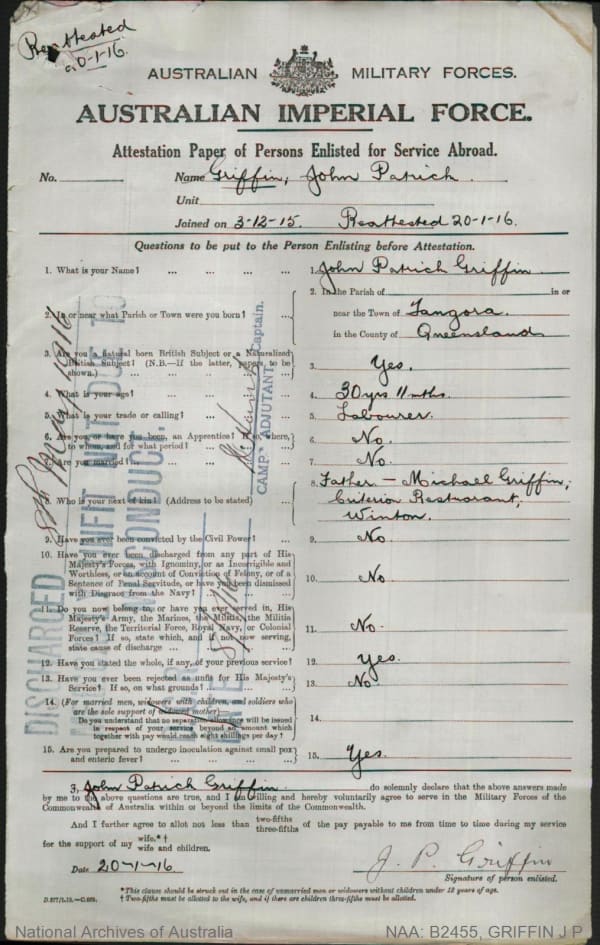 Reattested
20-1-16.
AUSTRALIAN MILITARY FORCES.
AUSTRALIAN IMPERIAL FORCE.
Attestation Paper of Persons Enlisted for Service Abroad.
No. Name Griffin, John Patrick.
Unit
Joined on 3-12-15. Reattested 20-1-16.
Questions to be put to the Person Enlisting before Attestation.
1. What is your Name? ... ... ... ... 1. John Patrick Griffin
2. In or near what Parish or Town were you born? ... 2. In the Parish of in or
near the Town of Tangora.
in the County of Queensland
3. Are you a natural born British Subject or a Naturalized
British Subject? (N.B.—If the latter, papers to be
shown.) 3. Yes.
4. What is your age? 4. 30 yrs 11 mths.
5. What is your trade or calling? 5. Labourer.
6. Are you, or have you been, an Apprentice? If so, where,
to whom, and for what period? 6. No.
7. Are you married? 7. No.
8. Who is your next of kin? (Address to be stated) 8. Father — Michael Griffin,
Criterion Restaurant,
Winton.
9. Have you ever been convicted by the Civil Power? 9. No.
10. Have you ever been discharged from any part of His
Majesty's Forces, with Ignominy, or as Incorrigible and
Worthless, or on account of Conviction of Felony, or of a
Sentence of Penal Servitude, or have you been dismissed
with Disgrace from the Navy? 10. No
11. Do you now belong to, or have you ever served in, His
Majesty's Army, the Marines, the Militia, the Militia
Reserve, the Territorial Force, Royal Navy, or Colonial
Forces? If so, state which, and if not now serving,
state cause of discharge 11. No.
12. Have you stated the whole, if any, of your previous service? 12. Yes.
13. Have you ever been rejected as unfit for His Majesty's
Service? If so, on what grounds? 13. No.
14. (For married men, widowers with children, and soldiers who
are the sole support of widowed mother)—
Do you understand that no separation allowance will be issued
in respect of your service beyond an amount which
together with pay would reach eight shillings per day? 14.
15. Are you prepared to undergo inoculation against small pox
and enteric fever? 15. Yes.
I, John Patrick Griffin do solemnly declare that the above answers made
by me to the above questions are true, and I am willing and hereby voluntarily agree to serve in the Military Forces of the
Commonwealth of Australia within or beyond the limits of the Commonwealth.
And I further agree to allot not less than two-fifths
three-fifths of the pay payable to me from time to time during my service
for the support of my wife.* †
wife and children.
Date 20-1-16. J. P. Griffin
Signature of person enlisted.
*This clause should be struck out in the case of unmarried men or widowers without children under 18 years of age.
† Two-fifths must be allotted to the wife, and if there are children three-fifths must be allotted.
DISCHARGED
UNFIT NOT DUE TO
MISCONDUCT.
8th May 1916
Captain.
CAMP ADJUTANT
National Archives of Australia NAA: B2455, GRIFFIN J P